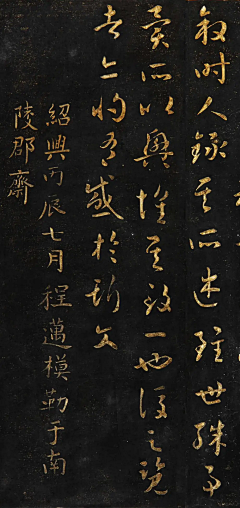 叙时人録其所述雖世殊事
異所以興懷其致一也後之覽
者亦将有感於斯文
紹興丙辰七月程邁模勒于南
陵郡齋